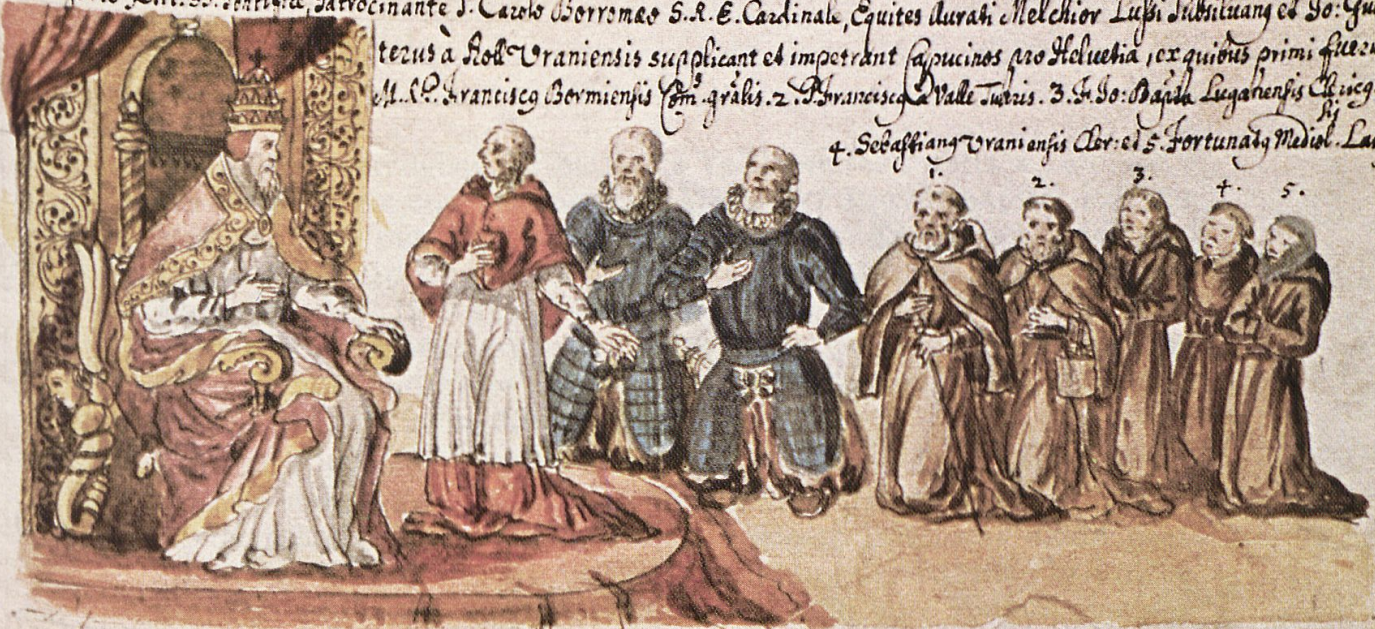 Pontifice, patrocinante S. Carolo Borromæo S. R. E. Cardinale, Equites Aurati Melchior Lussi Subsiluang et Jo:
terus à Roll Vraniensis supplicant et impetrant Capucinos pro Heluetia, ex quibus primi fuerũ
M. R. P. Franciscq Bormiensis Com. grãlis. 2. P. Franciscq à Valle 3. F. Jo: Bapta Luganensis Clericq
4. Sebastianq Vraniensis Cler: et 5. Fortunatq Mediol. Lai
1. 2. 3. 4. 5.